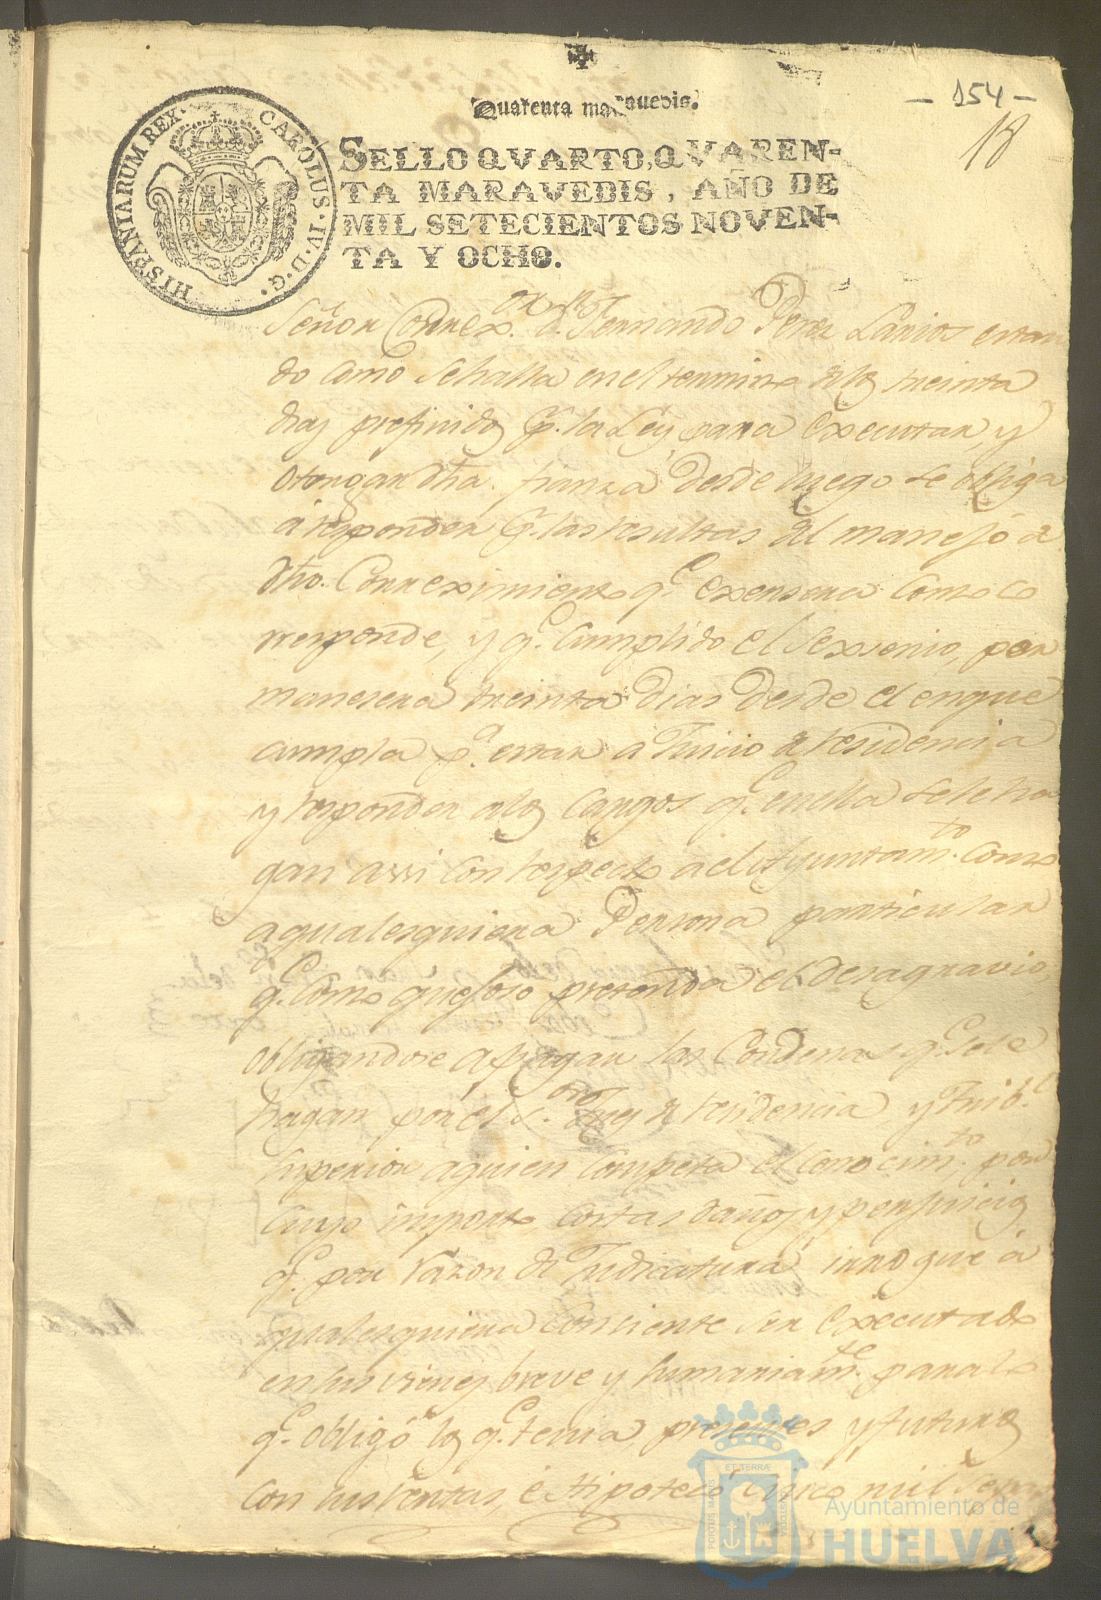 - 154 -
18
Quarenta maravedis.
SELLO QVARTO, QVAREN-
TA MARAVEDIS, AÑO DE
MIL SETECIENTOS NOVEN-
TA Y OCHO.
HISPANIARUM REX · CAROLUS · IV · D · G ·
Señor Correx.or dn. Fernando Perez Larios estan
do como se halla en el termino de los treinta
dias prefinidos pr. la Ley para executar, y
otorgar dha. fianza desde luego se obliga
á responder pr. las resultas del manejo de
dho. Correximiento qe. exersera como co
rresponde, y qe. cumplido el sexsenio, per
manesera treinta dias desde el en que
cumpla pa. estar a Juicio de residencia
y responder a los cargos qe. en ella se le ha
gan assi con respecto a el Ayuntamto. como
a qualesquiera Persona particular
qe. como quejoso pretenda el desagravio,
obligandose a pagar las Condenas qe. se le
hagan por el Sor. Juez de residencia, y Tribl.
Superior a quien competa el conocimto. por
cuyo importe costas daños y perjuicios
qe. por razon de Judicatura irrogue á
qualesquiera consiente ser executado
en sus vienes breve y sumariamte. para lo
qe. obligó los qe. tenia presentes y futuros
con sus rentas, é Hipotecó cinco mil
Ayuntamiento de
HUELVA